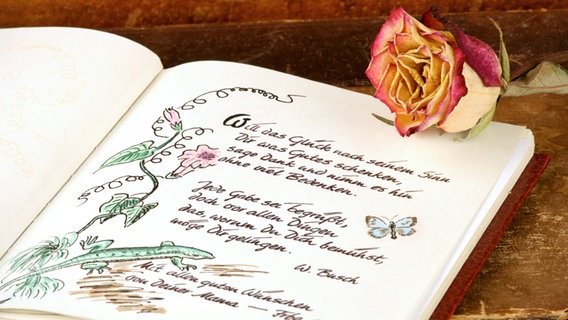 Will das Glück nach seinem Sinn
Dir was Gutes schenken,
sage Dank und nimm es hin
ohne viel Bedenken.
Jede Gabe sei begrüßt,
doch vor allen Dingen
Das, worum Du Dich bemühst,
möge Dir gelingen.
W. Busch
Mit allen guten Wünschen
von Deiner Mama —